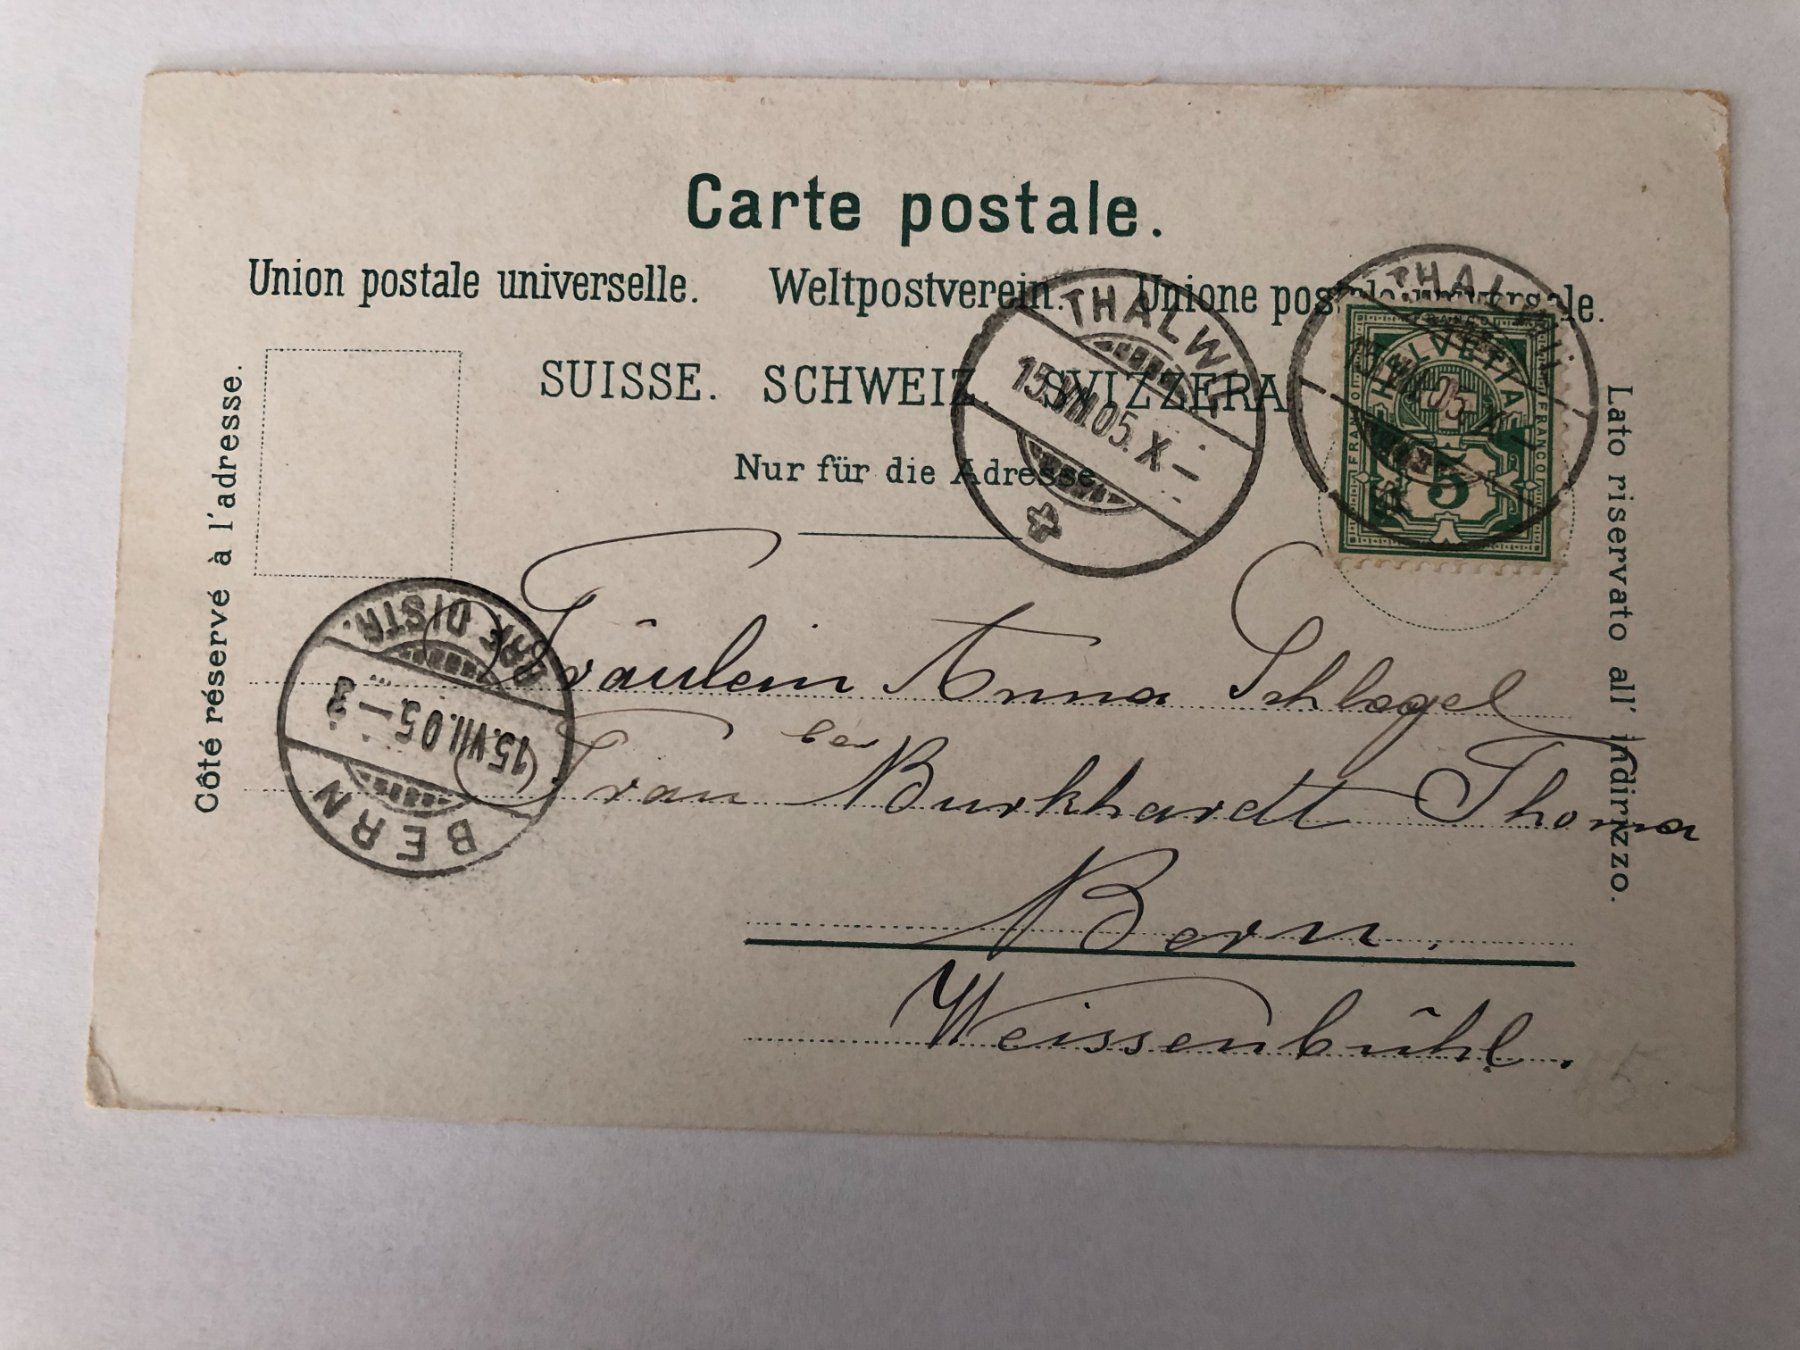 Carte postale.
Union postale universelle. Weltpostverein. Unione postale universale.
SUISSE. SCHWEIZ. SVIZZERA
Nur für die Adresse
Côté réservé à l'adresse.
Lato riservato all' indirizzo.
THALWIL
15.VII.05.X–
THALWIL
15.VII.05.X–
HELVETIA
FRANCO
FRANCO
5
BERN
15.VII.05–3
BRF. DISTR.
Fräulein Anna Schlagel
bei
Frau Burkhardt Thoma
Bern.
Weissenbühl.